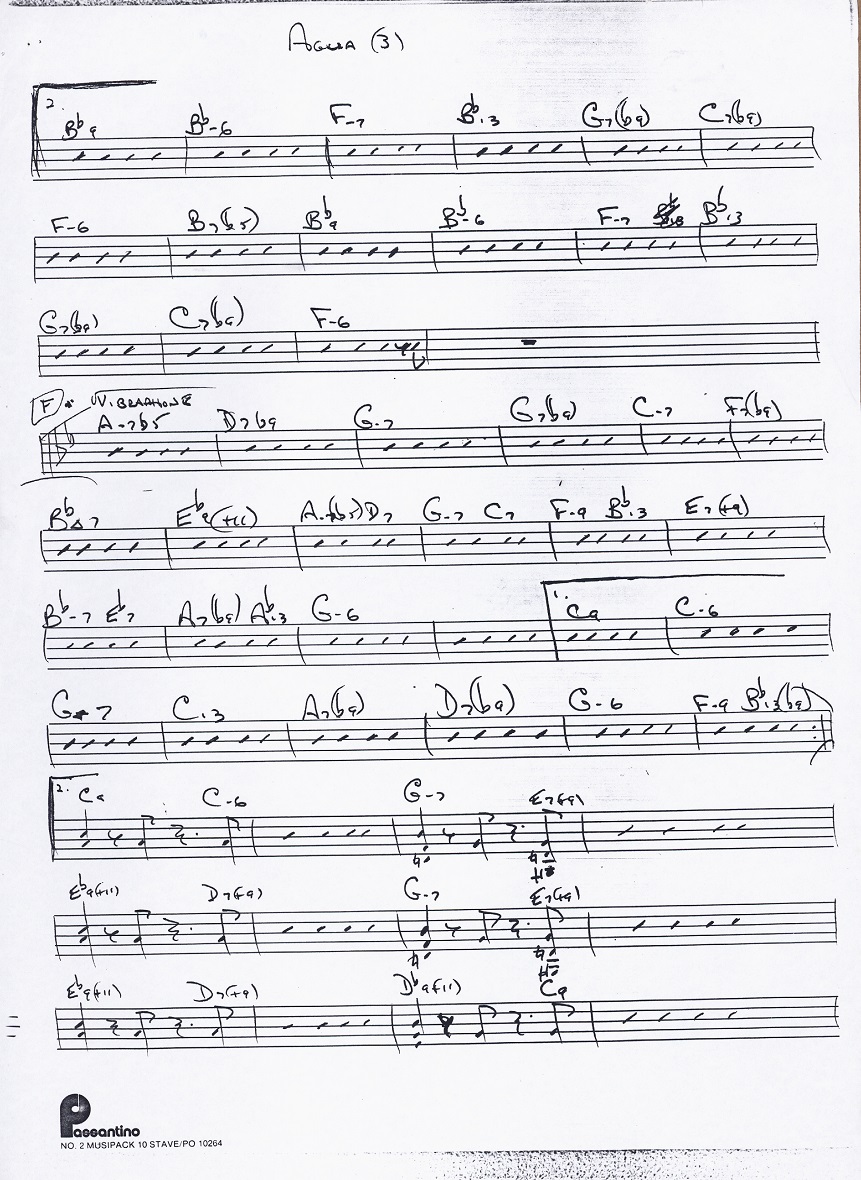 AGUA (3)
2.
B♭9 B♭-6 F-7 B♭13 G7(b9) C7(b9)
F-6 B7(b5) B♭9 B♭-6 F-7 B♭13
G7(b9) C7(b9) F-6
F VIBRAPHONE
A-7b5 D7b9 G-7 G7(b9) C-7 F7(b9)
B♭Δ7 E♭9(+11) A-7(b5) D7 G-7 C7 F-9 B♭13 E7(+9)
1.
B♭-7 E♭7 A7(b9) A♭13 G-6 C9 C-6
G-7 C13 A7(b9) D7(b9) G-6 F-9 B♭13(b9)
2.
C9 C-6 G-7 E7(+9)
E♭9(+11) D7(+9) G-7 E7(+9)
E♭9(+11) D7(+9) D♭9(+11) C9
Passantino
NO. 2 MUSIPACK 10 STAVE/PO 10264